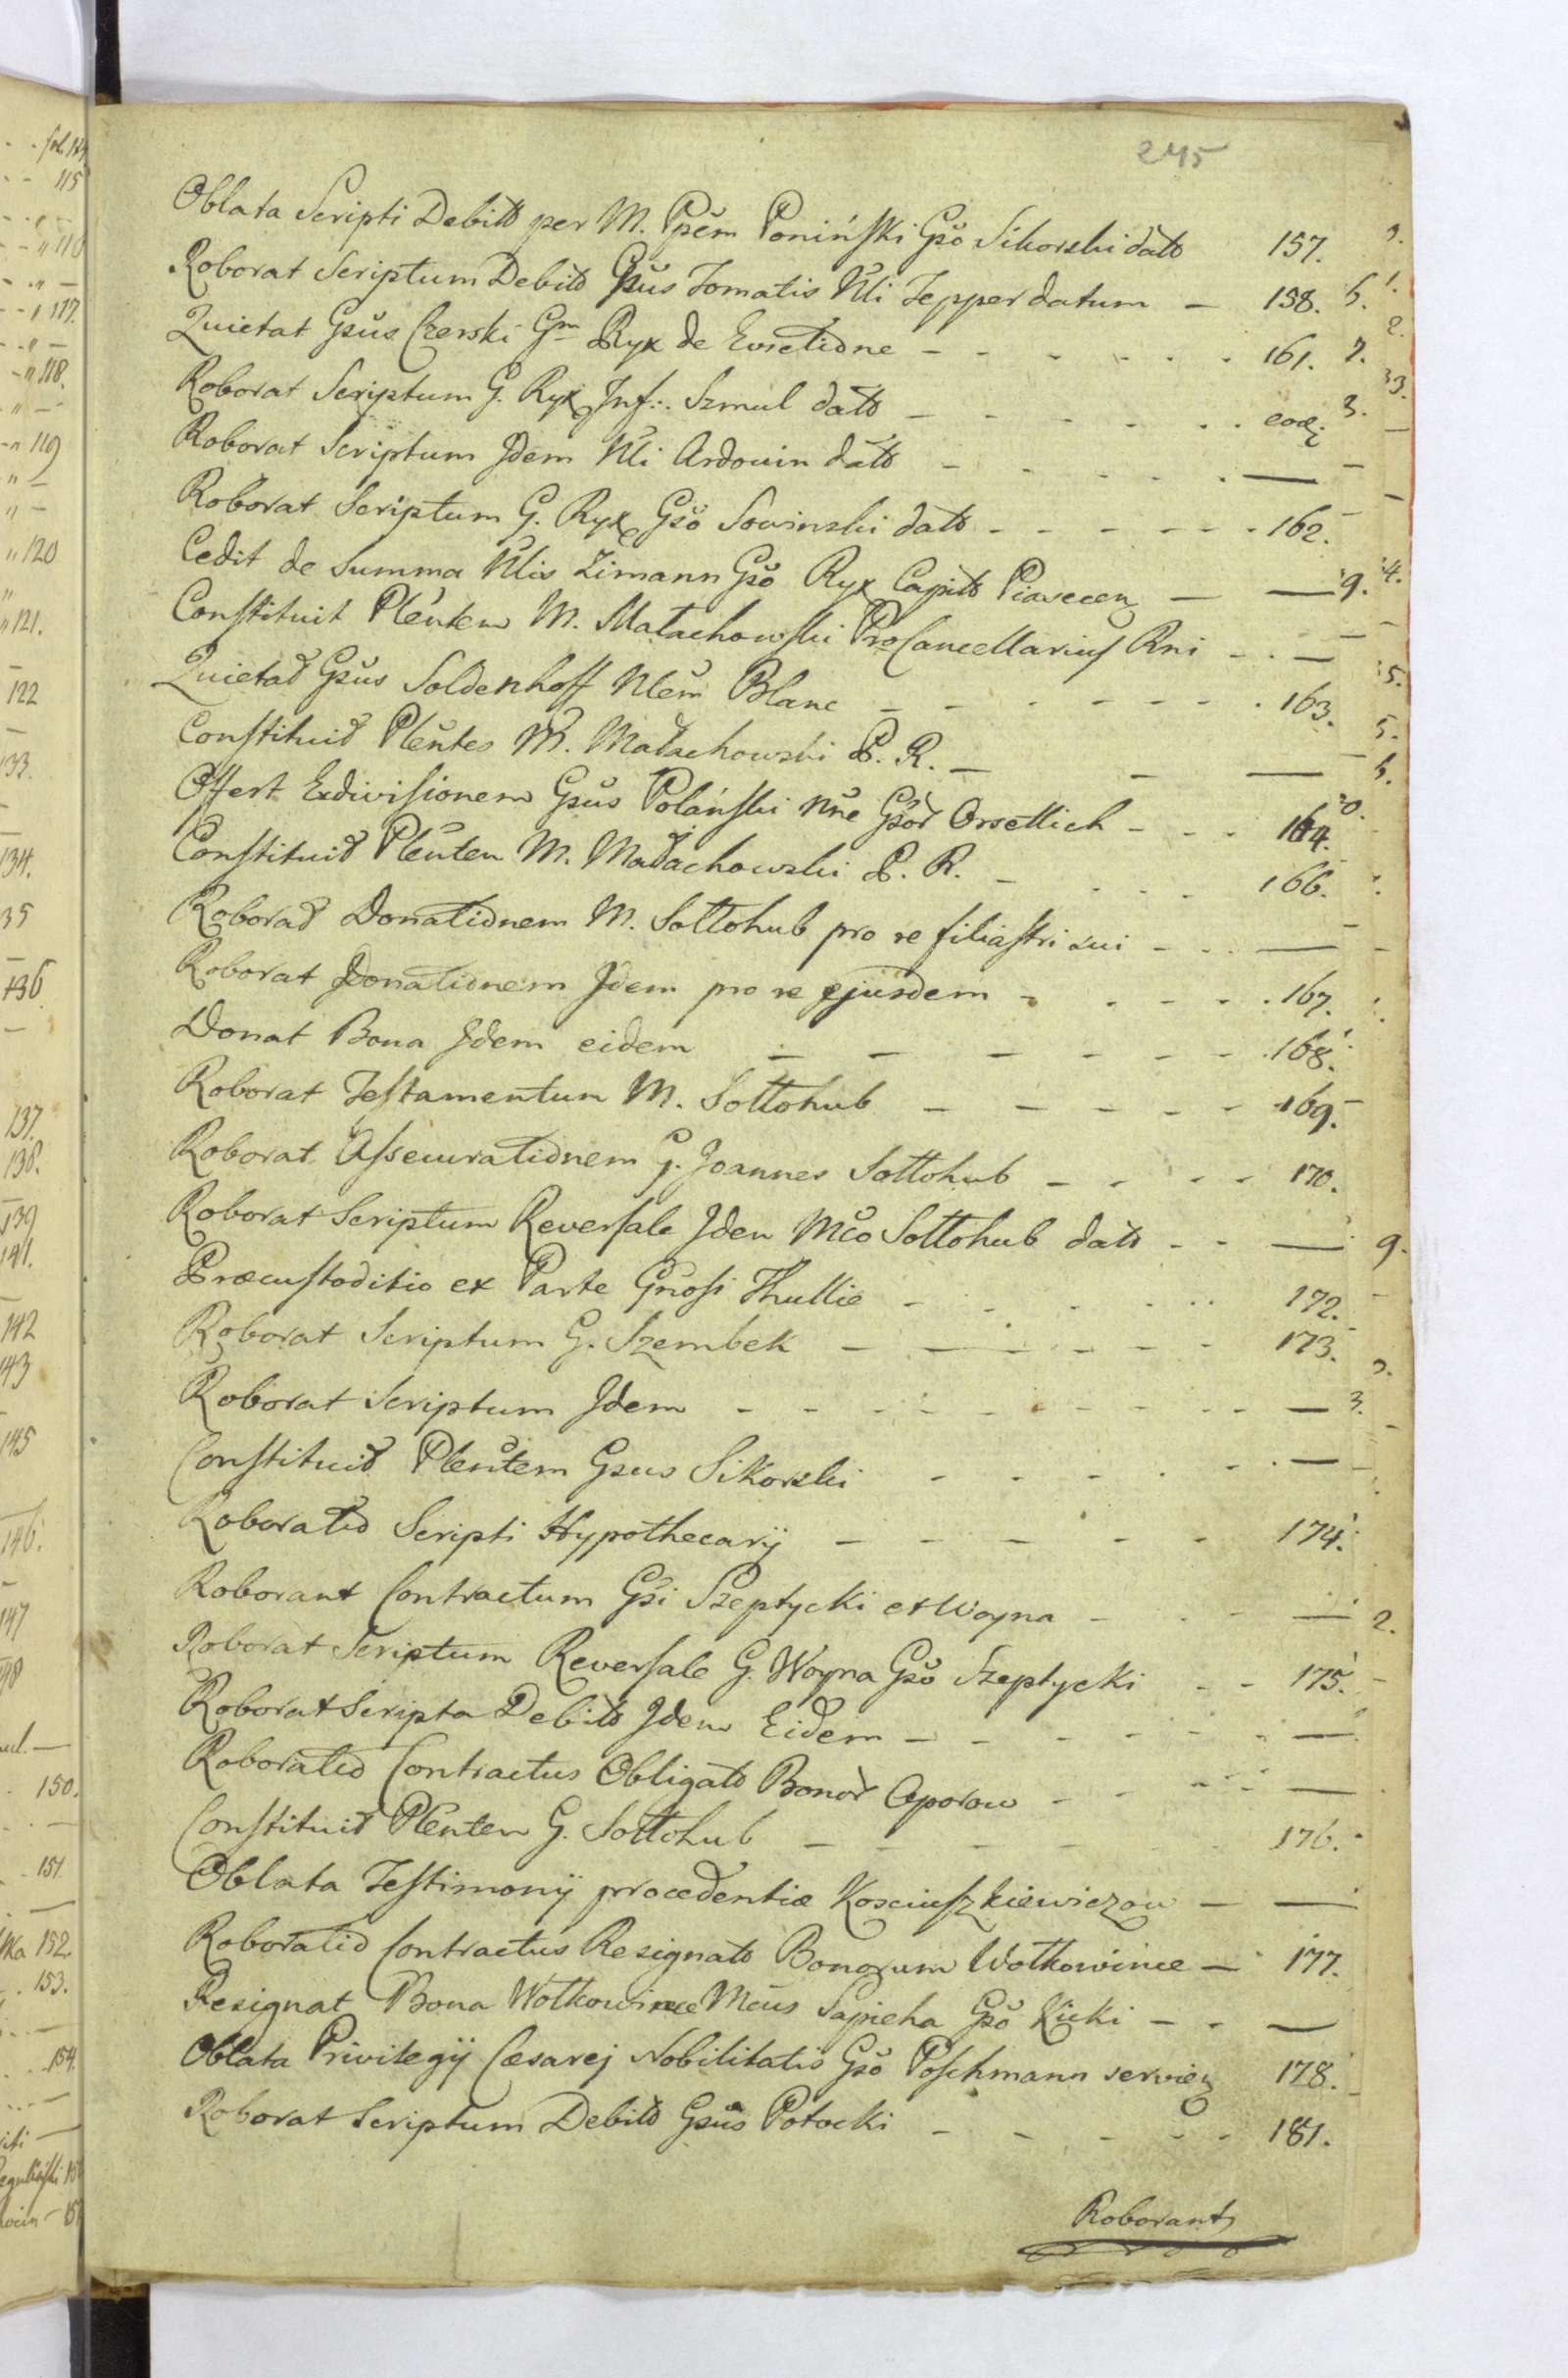 245
Oblata Scripti Debito per M. Ppem Poninski Gso Sikorski dato 157.
Roborat Scriptum Debito Gsus Tomatis Nli Tepper datum — 158.
Quietat Gsus Czerski Gm Ryx de Evictione - - - - - - 161.
Roborat Scriptum G. Ryx Inf: Szmul dato - - - - - eod:
Roborat Scriptum Idem Nli Ardouin dato - - - - - —
Roborat Scriptum G. Ryx Gso Sowinski dato - - - - - - 162.
Cedit de Summa Nlis Zimann Gso Ryx Capito Piasecen — —
Constituit Plentem M. Małachowski ProCancellarius Rni - - —
Quietat Gsus Soldenhoff Nlem Blanc - - - - - - - 163.
Constituit Plentes M. Małachowski P. R. — - —
Offert Exdivisionem Gsus Polański nne Gsor Orsettich - - - 164.
Constituit Plenten M. Małachowski P. R. - - - - 166.
Roborat Donationem M. Sołłohub pro re filiastri sui - - - —
Roborat Donationem Idem pro re ejusdem - - - - - 167.
Donat Bona Idem eidem - - - - - - - 168.
Roborat Testamentum M. Sołłohub - - - - - - 169.
Roborat Assecurationem G. Joannes Sołłohub - - - - 170.
Roborat Scriptum Reversale Idem Mco Sołłohub dato - - —
Præcustoditio ex Parte Gnosi Thullie - - - - - 172.
Roborat Scriptum G. Szembek - - - - - - 173.
Roborat Scriptum Idem - - - - - - - - - —
Constituit Plentem Gsus Sikorski - - - - - - —
Roboratio Scripti Hypothecarij - - - - - 174.
Roborant Contractum Gsi Szeptycki et Woyna - - - —
Roborat Scriptum Reversale G. Woyna Gso Szeptycki - - 175.
Roborat Scripta Debito Idem Eidem - - - - - - —
Roboratio Contractus Obligato Bonor Oporow - - - - —
Constituit Plenten G. Sołłohub - - - - - 176.
Oblata Testimonij procedentiæ Kosciuszkiewiczow — —
Roboratio Contractus Resignato Bonorum Wołkowince — 177.
Resignat Bona Wołkowince Mcus Sapieha Gso Kicki - - —
Oblata Privilegij Cæsarej Nobilitatis Gso Poschmann servien 178.
Roborat Scriptum Debito Gsus Potocki - - - - - - 181.
Roborant